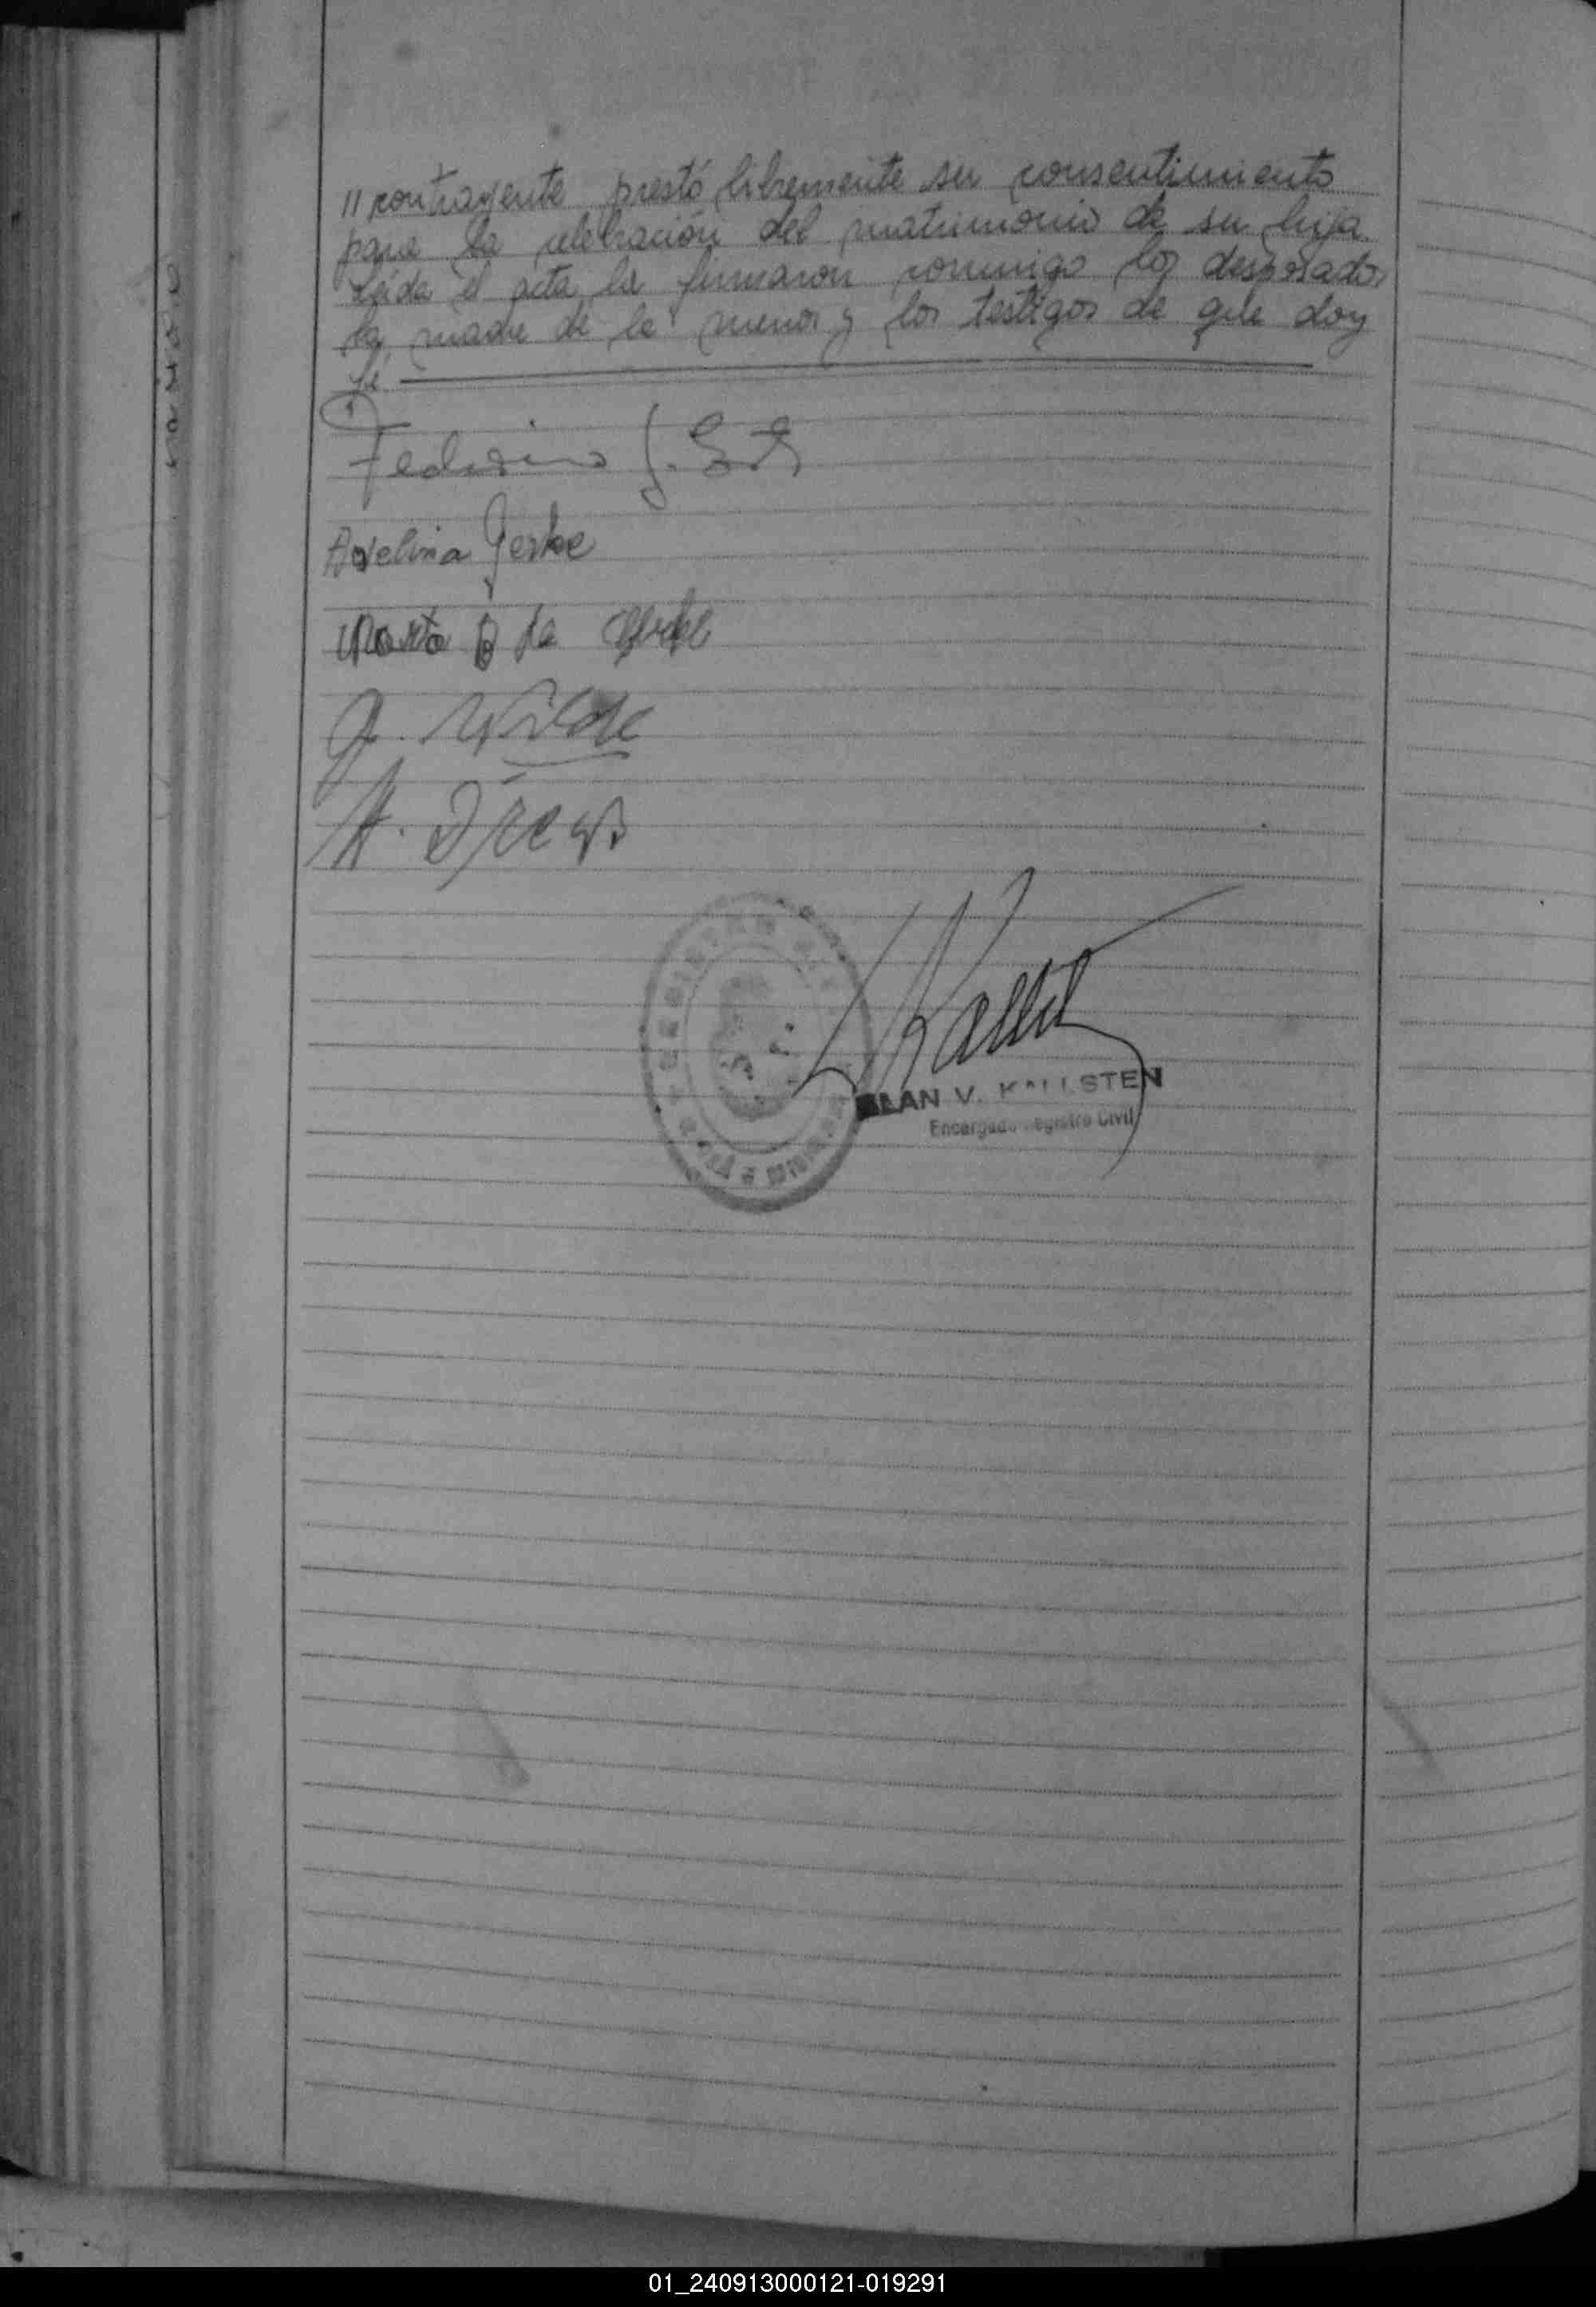 // contrayente prestó libremente su consentimiento
para la celebración del matrimonio de su hija.
Leída el acta la firmaron conmigo los desposados
la madre de la menor y los testigos de que doy
fé
Federico J.
Avelina Gerke
Marta B de Gerke
G. Wilde
H. Drews
Kallst
ALAN V. KALLSTEN
Encargado Registro Civil
01_240913000121-019291